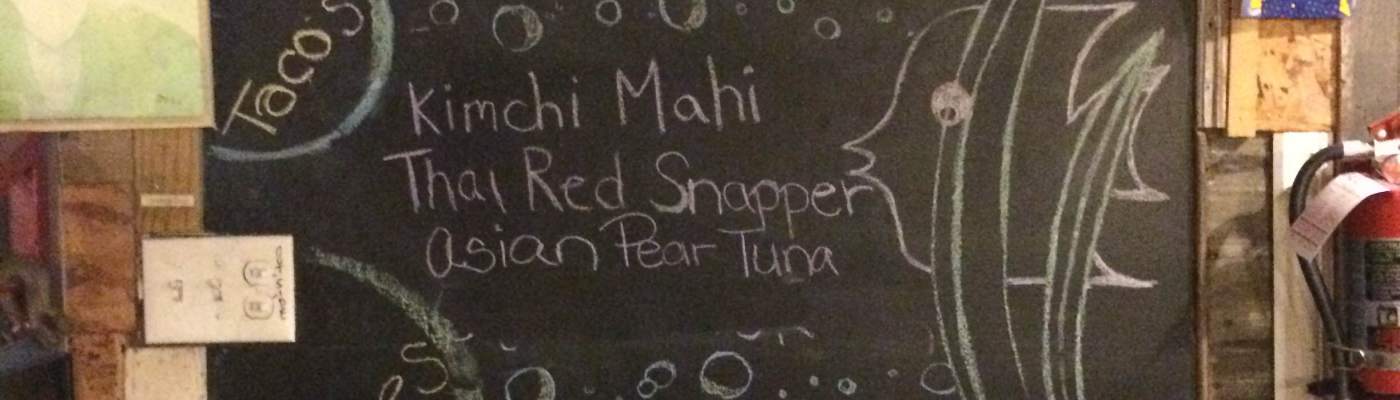 Tacos
Kimchi Mahi
Thai Red Snapper
Asian Pear Tuna